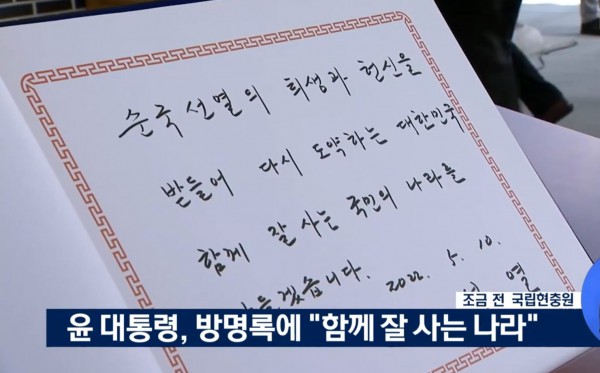 순국선열의 희생과 헌신을
받들어 다시 도약하는 대한민국
함께 잘 사는 국민의 나라를
만들겠습니다. 2022. 5. 10.
열
조금 전 국립현충원
윤 대통령, 방명록에 "함께 잘 사는 나라"